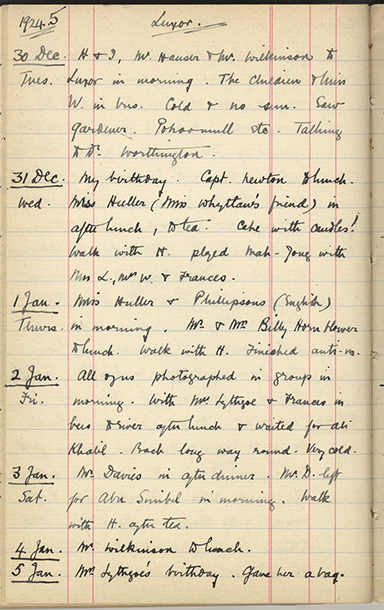 1924.5 Luxor.
30 Dec. H & I, Mr. Hauser & Mr. Wilkinson to
Tues. Luxor in morning. The children & Miss
W. in bus. Cold & no sun. Saw
gardener. Pohoomull etc. Talking
to Dr. Worthington.
31 Dec. My birthday. Capt. Newton to lunch.
Wed. Miss Huller (Miss Whyttaw's friend) in
after lunch, & tea. Cake with candles!
Walk with H. played Mah-Jong with
Mrs L., Mrs W. & Frances.
1 Jan. Miss Huller & Phillipsons (English)
Thurs. in morning. Mr. & Mrs. Billy Horn blower
to lunch. Walk with H. Finished
2 Jan. All of us photographed in group in
Fri. morning. With Mrs Lythgoe & Frances in
bus driver after lunch & waited for Ali
Khalil. Back long way round. Very cold.
3 Jan. Mr. Davies in after dinner. Mr. D. left
Sat. for Abu Simbel in morning. Walk
with H. after tea.
4 Jan. Mr. Wilkinson to lunch.
5 Jan. Mrs Lythgoe's birthday. Gave her a bag.